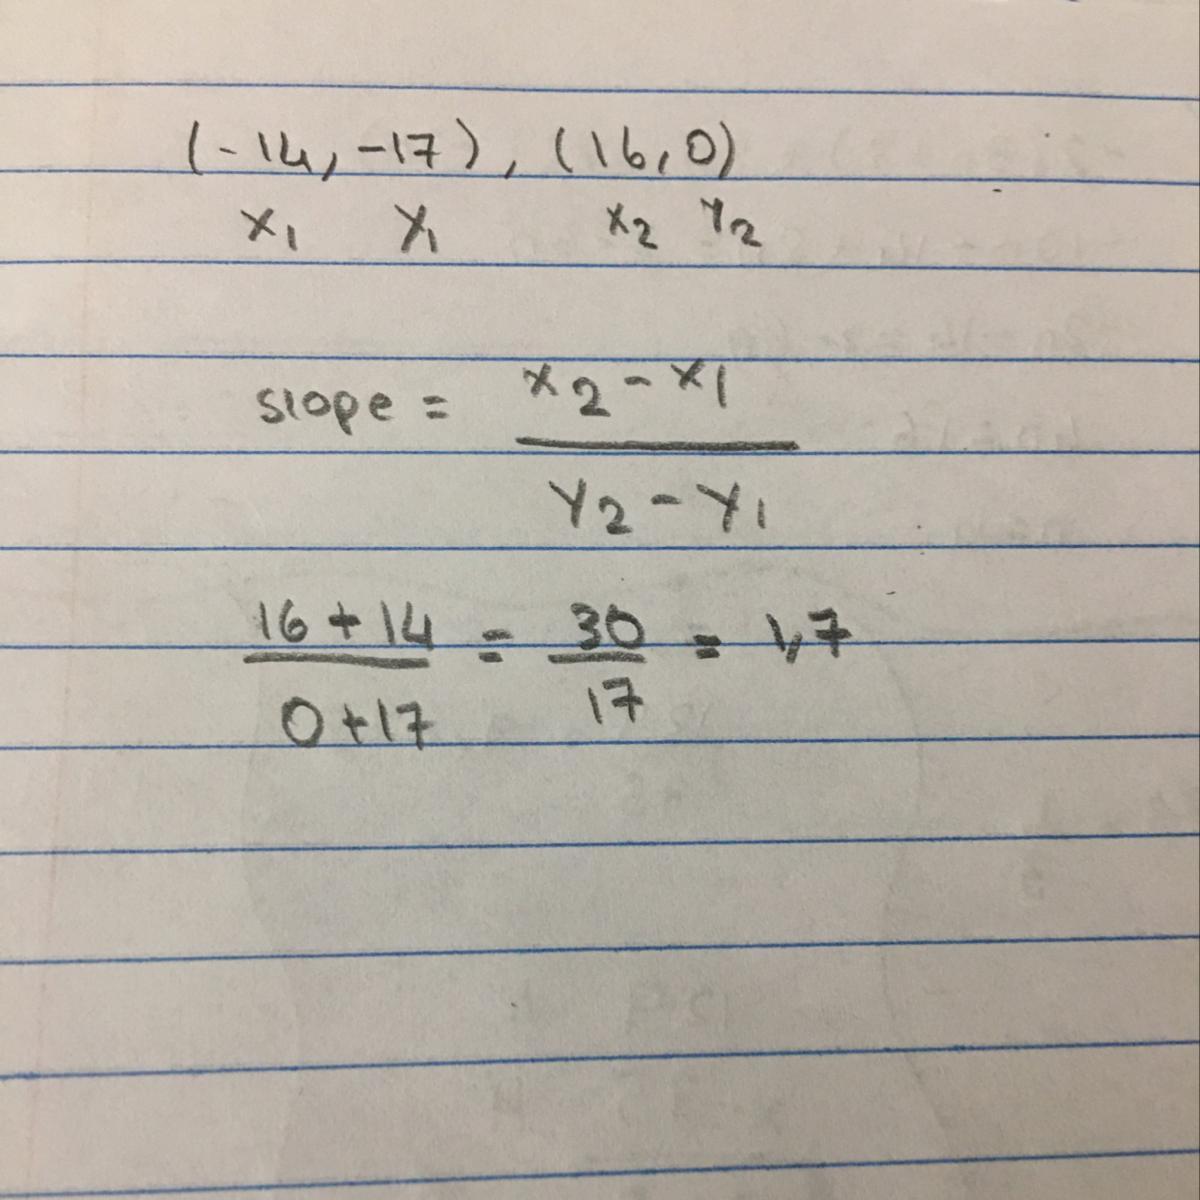 (-14, -17), (16, 0)
x₁ y₁ x₂ y₂
slope = x₂ - x₁
y₂ - y₁
16 + 14 = 30 = 1,7
0 + 17 17